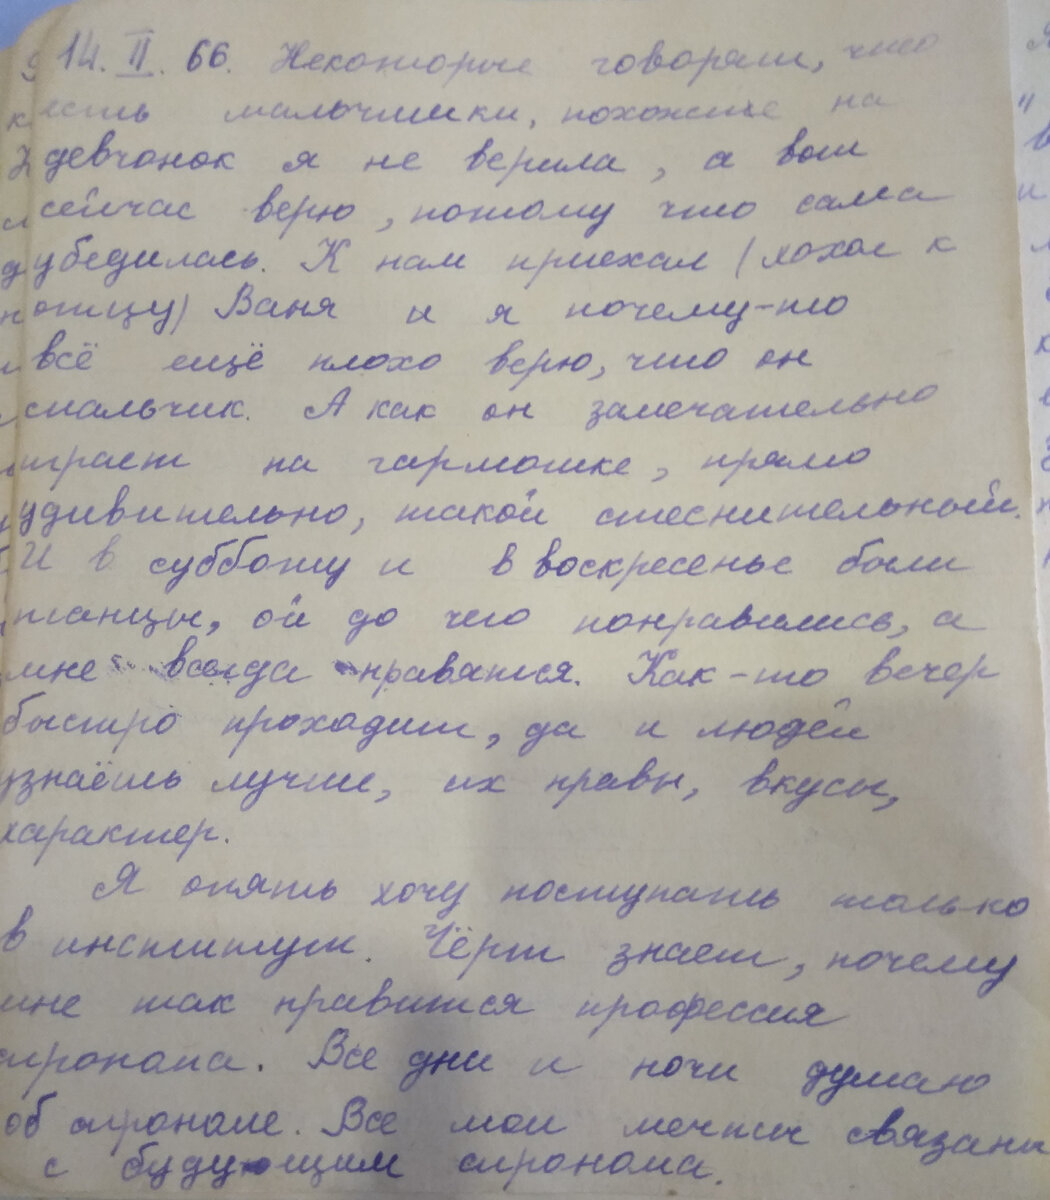 14. II. 66. Некоторые говорят, что
есть мальчишки, похожие на
девчонок я не верила, а вот
сейчас верю, потому что сама
убедилась. К нам приехал (хохол к
отцу) Ваня и я почему-то
всё ещё плохо верю, что он
мальчик. А как он замечательно
играет на гармошке, прямо
удивительно, такой стеснительный.
И в субботу и в воскресенье были
танцы, ой до чего понравились, а
мне всегда нравятся. Как-то вечер
быстро проходит, да и людей
узнаёшь лучше, их нравы, вкусы,
характер.
Я опять хочу поступать только
в институт. Чёрт знает, почему
мне так нравится профессия
агронома. Все дни и ночи думаю
об агрономе. Все мои мечты связаны
с будующим агронома.